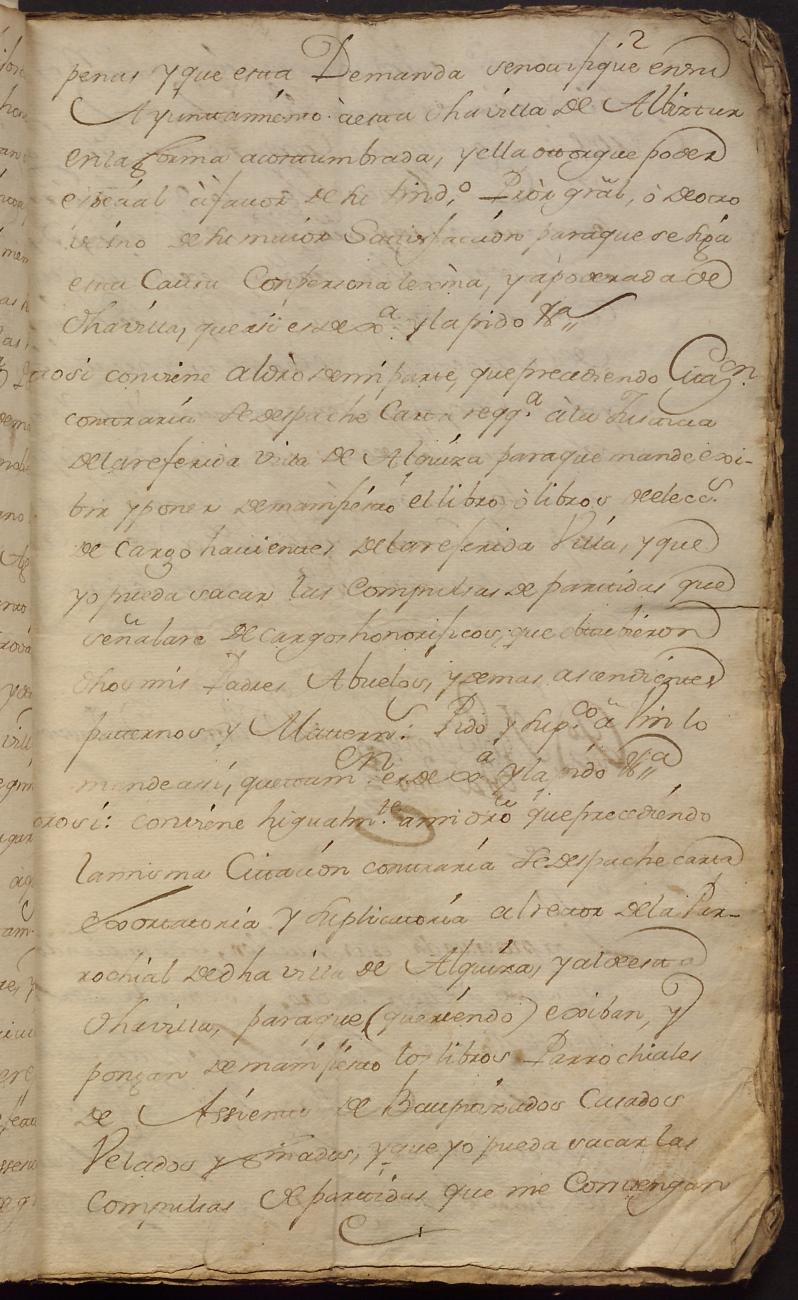 2
penas y que esta Demanda se notifique en su
Ayuntamiento à esta dha villa de Albiztur
en la forma acostumbrada, y ella otorgue poder
espeãal à favor de su Sind.º Prõr grãl, ò de otro
vecino de su maior Satisfaccion para que se siga
esta Causa Con persona lexma, y apoderada de
dha villa, que asi es de xa. y la pido Va
otrosi conviene al dro de mi parte, que precediendo Citaon.
contraria se despache Carta reqqa. à la Justicia
de la referida villa de Alquiza para que mande exi-
bir y poner de manifiesto el libro ò libros de elecs.
de cargo havientes de la referida Villa, y que
yo pueda sacar las Compulsas de partidas que
señalare de cargos honorificos, que tubieron
dhos mis Padres Abuelos, y demas ascendientes
paternos y Matern.s Pido y supco. à Vm lo
mande assi, que tamen. es de xa y la pido Va
otrosi: conviene higualmte. a mi dro que precediendo
la misma Citacion contraria se despache carta
exortatoria y suplicatoria al retor de la Par-
rochial de dha villa de Alquiza, y al de esta
dha villa, para que (queriendo) exiban, y
pongan de manifiesto los libros Parrochiales
de Assiento de Bauptizados Casados
Velados y finados, y que yo pueda sacar las
Compulsas de partidas que me Convengan